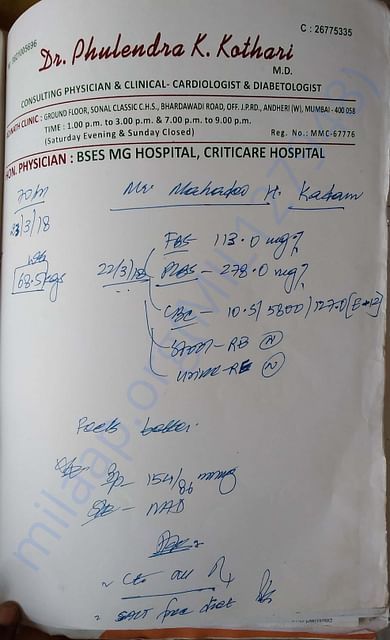 C : 26775335
Dr. Phulendra K. Kothari
M.D.
CONSULTING PHYSICIAN & CLINICAL- CARDIOLOGIST & DIABETOLOGIST
CLINIC : GROUND FLOOR, SONAL CLASSIC C.H.S., BHARDAWADI ROAD, OFF. J.P.RD., ANDHERI (W), MUMBAI - 400 058
TIME : 1.00 p.m. to 3.00 p.m. & 7.00 p.m. to 9.00 p.m.
(Saturday Evening & Sunday Closed) Reg. No.: MMC-67776
HON. PHYSICIAN : BSES MG HOSPITAL, CRITICARE HOSPITAL
70/m Mr. Mahadeo H. Kadam
23/3/18
FBS - 113.0 mg%
68.5 kgs 22/3/18 PLBS - 278.0 mg%
CBC - 10.5/5800/
Stool - RE (N)
Urine - RE (N)
Feels better.
BP - 154/80 mmHg
NAD
Adv
~ Ct all Rx
~ salt free diet
milaap.org